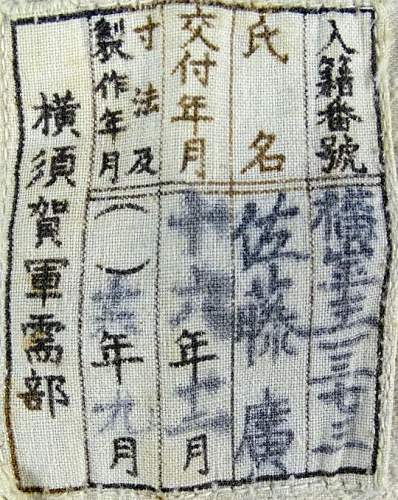 入籍番號 横
氏名 佐藤廣
交付年月 十六年十二月
寸法及
製作年月 年九月
横須賀軍需部